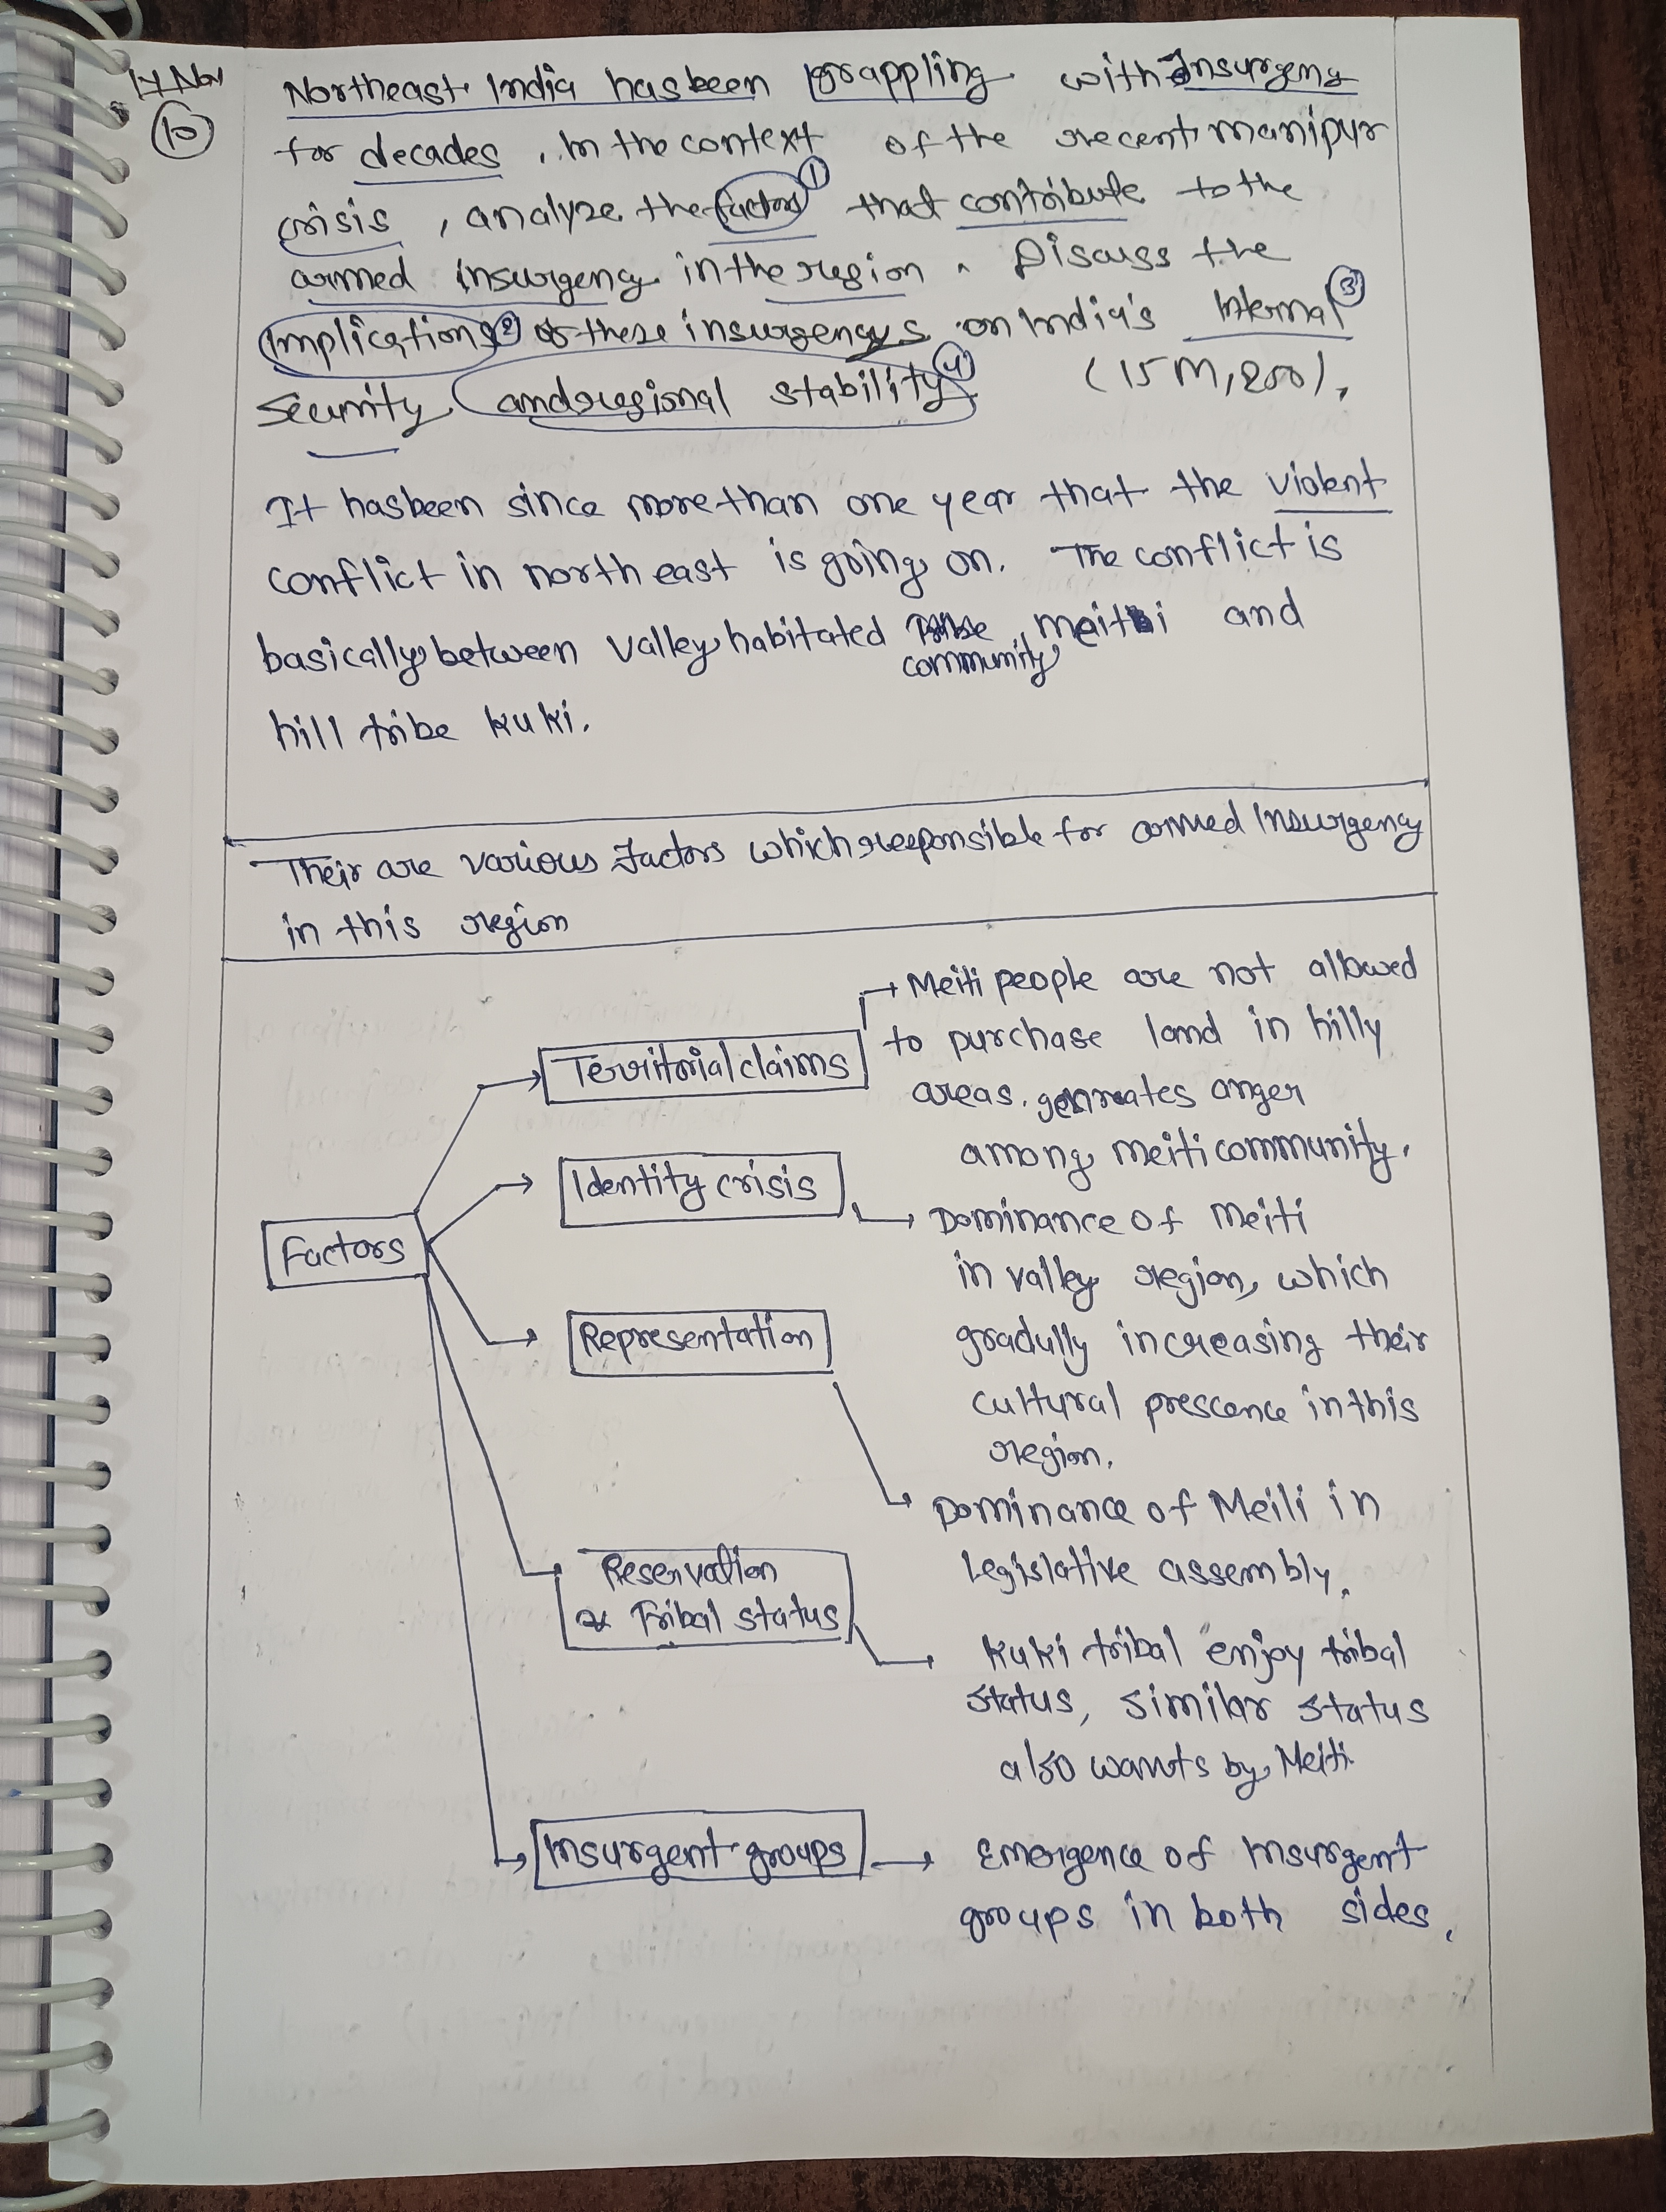 17 Nov
10
Northeast India hasbeen grappling with Insurgency
for decades. In the context of the recent manipur
crisis, analyze the factors ① that contribute to the
armed insurgency in the region. Discuss the
implications ② of these insurgencys on India's Internal ③
Security and regional stability ④ (15 M, 200).
It hasbeen since more than one year that the violent
conflict in north east is going on. The conflict is
basically between valley habitated meitei and
community
hill tribe kuki.
Their are various factors which responsible for armed Insurgency
in this region
Factors
Territorial claims
Meiti people are not allowed
to purchase land in hilly
areas. generates anger
among meiti community.
Identity crisis
Dominance of Meiti
in valley region, which
gradully increasing their
cultural prescence in this
region.
Representation
Dominance of Meiti in
legislative assembly.
Reservation
& Tribal status
Kuki tribal enjoy tribal
status, similar status
also wants by Meiti.
Insurgent groups
Emergence of Insurgent
groups in both sides.